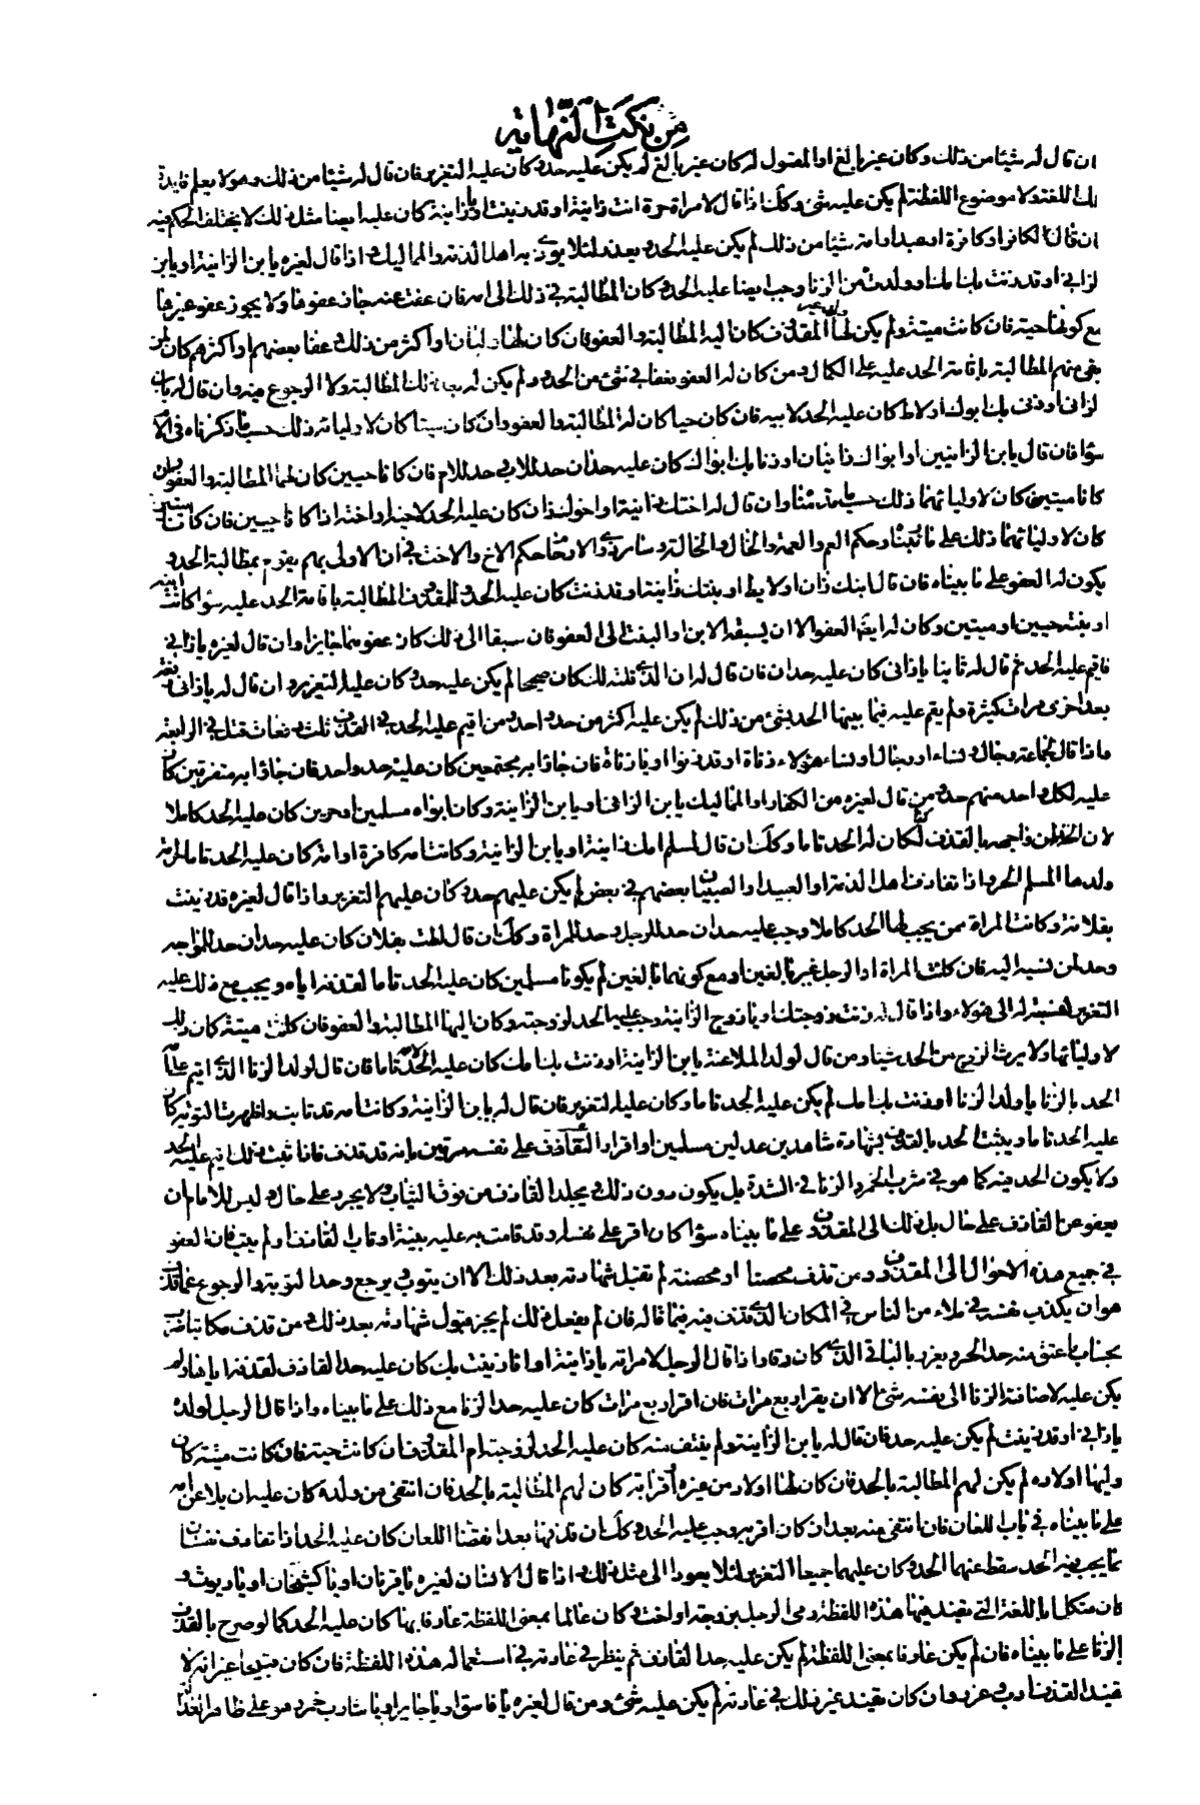 من نكت النهايه
ان قال له شيئا من ذلك وكان غير بالغ او المقول له كان غير بالغ لم يكن عليه حد وكان عليه التعزير فان قال له شيئا من ذلك وهو لا يعلم فايدة
تلك اللغة ولا موضوع اللفظة لم يكن عليه شئ وكذلك اذا قال لامراة حرة انت زانية او قد زنيت او يا زانية كان عليه ايضا مثل ذلك لا يختلف الحكم فيه
ان قال لكافر او كافرة او عبد او امة شيئا من ذلك لم يكن عليه الحد ويعزر لئلا يوذى به اهل الذمة والمماليك واذا قال لغيره يا بن الزانية او يا بن
لزاني او قد زنت بك امك او ولدت من الزنا وجب ايضا عليه الحد وكان المطالبة في ذلك الى امه فان عفت عنه جاز عفوها ولا يجوز عفو غيرها
مع كونها حية فان كانت ميتة ولم يكن لها ولي غير المقذوف كان اليه المطالبة والعفو فان كان لها وليان او اكثر من ذلك وعفا بعضهم او اكثرهم كان لمن
بقى منهم المطالبة باقامة الحد عليه على الكمال ومن كان له العفو فعفا في شئ من الحدود لم يكن له بعد ذلك المطالبة ولا الرجوع فيه وان قال له يا بن
لزاني او زنى بك ابوك او لاط كان عليه الحد لابيه فان كان حيا كان له المطالبة والعفو وان كان ميتا كان لاوليائه ذلك حسب ما ذكرناه في الام
سوا فان قال يا بن الزانيين او ابواك زانيان او زنا بك ابواك كان عليه حدان حد للاب وحد للام فان كانا حيين كان لهما المطالبة والعفو وان
كانا ميتين كان لاوليائهما ذلك حسب ما قدمناه وان قال له اختك زانية او اخوك زان كان عليه الحد لاخيه او اخته اذا كانا حيين فان كانا ميتين
كان لاوليائهما ذلك على ما رتبناه وحكم العم والعمة والخال والخالة وساير ذوي الارحام حكم الاخ والاخت في ان الاولى بهم يقوم بمطالبة الحد و
يكون له العفو على ما بيناه فان قال ابنك زان او لايط او بنتك زانية او قد زنت كان عليه الحد وللمقذوف المطالبة باقامة الحد عليه سوا كان ابنه
او بنته حيين او ميتين وكان له ايضا العفو الا ان يسبقه الابن او البنت الى العفو فان سبقا الى ذلك كان عفوهما جايزا وان قال لغيره يا زاني
فاقيم عليه الحد ثم قال له ثانيا يا زاني كان عليه حدان فان قال له ان الذي قلته لك كان صحيحا لم يكن عليه حد وكان عليه التعزير وان قال له يا زاني دفعة
بعد اخرى مرات كثيرة ولم يقم عليه فيما بينها الحد بشئ من ذلك لم يكن عليه اكثر من حد واحد ومن اقيم عليه الحد في القذف ثلث دفعات قتل في الرابعة
واذا قال لجماعة رجال ونساء او رجال او نساء هؤلاء زناة او قد زنوا او يا زناة فان جاؤا به مجتمعين كان عليه حد واحد فان جاؤا به متفرقين كان
عليه لكل واحد منهم حد ومن قال لغيره من الكفار او المماليك يا بن الزاني او يا بن الزانية وكان ابواه مسلمين او حرين كان عليه الحد كاملا
لان الحد لمن واجهه بالقذف لكان له الحد تاما وكذلك ان قال لمسلم امك زانية او يا بن الزانية وكانت امه كافرة او امة كان عليه الحد تاما لحرمة
ولدها المسلم الحر واذا تقاذف اهل الذمة او العبيد او الصبيان بعضهم في بعض لم يكن عليهم حد وكان عليهم التعزير واذا قال لغيره قد زنيت
بفلانة وكانت المراة ممن يجب لها الحد كاملا وجب عليه حدان حد للرجل وحد للمراة وكذلك ان قال لطت بفلان كان عليه حدان حد للمواجه
وحد لمن نسبه اليه فان كانت المراة او الرجل غير بالغين او مع كونهما بالغين لم يكونا مسلمين كان عليه الحد تاما لقذفه اياه ويجب مع ذلك عليه
التعزير لنسبته له الى هؤلاء واذا قال له زنت زوجتك او يا زوج الزانية وجب عليه الحد لزوجته وكان اليها المطالبة والعفو فان كانت ميتة كان ذلك
لاوليائها ولا يرث الزوج من الحد شيئا ومن قال لولد الملاعنة يا بن الزانية او زنت بك امك كان عليه الحد لامه تاما فان قال لولد الزنا الذي اقيم على امه
الحد بالزنا يا ولد الزنا او زنت بك امك لم يكن عليه الحد تاما وكان عليه التعزير فان قال له يا بن الزانية وكانت امه قد تابت واظهرت التوبة كان
عليه الحد تاما ويثبت الحد بالقذف بشهادة شاهدين عدلين مسلمين او اقرار القاذف على نفسه مرتين بانه قد قذف فاذا ثبت ذلك اقيم عليه الحد
ولا يكون الحد فيه كما هو في شرب الخمر والزنا في الشدة بل يكون دون ذلك ويجلد القاذف من فوق الثياب ولا يجرد على حال وليس للامام ان
يعفو عن القاذف على حال بل ذلك الى المقذوف على ما بيناه سوا كان اقر على نفسه او قد قامت به عليه بينة او تاب القاذف او لم يتب فان العفو
في جميع هذه الاحوال الى المقذوف ومن قذف محصنا او محصنة لم تقبل شهادته بعد ذلك الا ان يتوب ويرجع وحد التوبة والرجوع عما قذف
هو ان يكذب نفسه في ملاء من الناس في المكان الذي قذف فيه فيما قاله فان لم يفعل ذلك لم يجز قبول شهادته بعد ذلك ومن قذف مكاتبا ضرب
بحساب ما عتق منه حد الحر ويعزر بالباقي الذي كان رقا واذا قال الرجل لامراته يا زانية او انا زنيت بك كان عليه حد القاذف لقذفه اياها ولم
يكن عليه لاضافة الزنا الى نفسه شئ الا ان يقر اربع مرات فان اقر اربع مرات كان عليه حد الزنا مع ذلك على ما بيناه واذا قال الرجل لولده
يا زاني او قد زنيت لم يكن عليه حد فان قال له يا بن الزانية ولم ينتف منه كان عليه الحد لزوجته ام المقذوف ان كانت حية فان كانت ميتة كان
وليها اولاده لم يكن لهم المطالبة بالحد فان كان لها اولاد من غيره او قرابة كان لهم المطالبة بالحد فان انتفى من ولده كان عليه ان يلاعن امه
على ما بيناه في باب اللعان فان انتفى منه بعد ان كان اقر به وجب عليه الحد وكذلك ان قذفها بعد انقضا اللعان كان عليه الحد اذا تقاذف نفسان
بما يجب فيه الحد سقط عنهما الحد وكان عليهما جميعا التعزير لئلا يعودا الى مثل ذلك واذا قال الانسان لغيره يا قرنان او يا كشخان او يا ديوث و
كان متكلما باللغة التي يفيد فيها هذه اللفظة رمي الرجل بزوجته او اخته وكان عالما بمعنى اللفظة عارفا بها كان عليه الحد كما لو صرح بالقذف
بالزنا على ما بيناه فان لم يكن عارفا بمعنى اللفظة لم يكن عليه حد القاذف ثم ينظر في عادته في استعماله هذه اللفظة فان كان قبيحا غير انه لا
يفيد القذف ادب وعزر وان كان يفيد غير ذلك في عادته لم يكن عليه شئ ومن قال لغيره يا فاسق او يا جاير او يا شارب خمر وهو على ظاهر العدالة